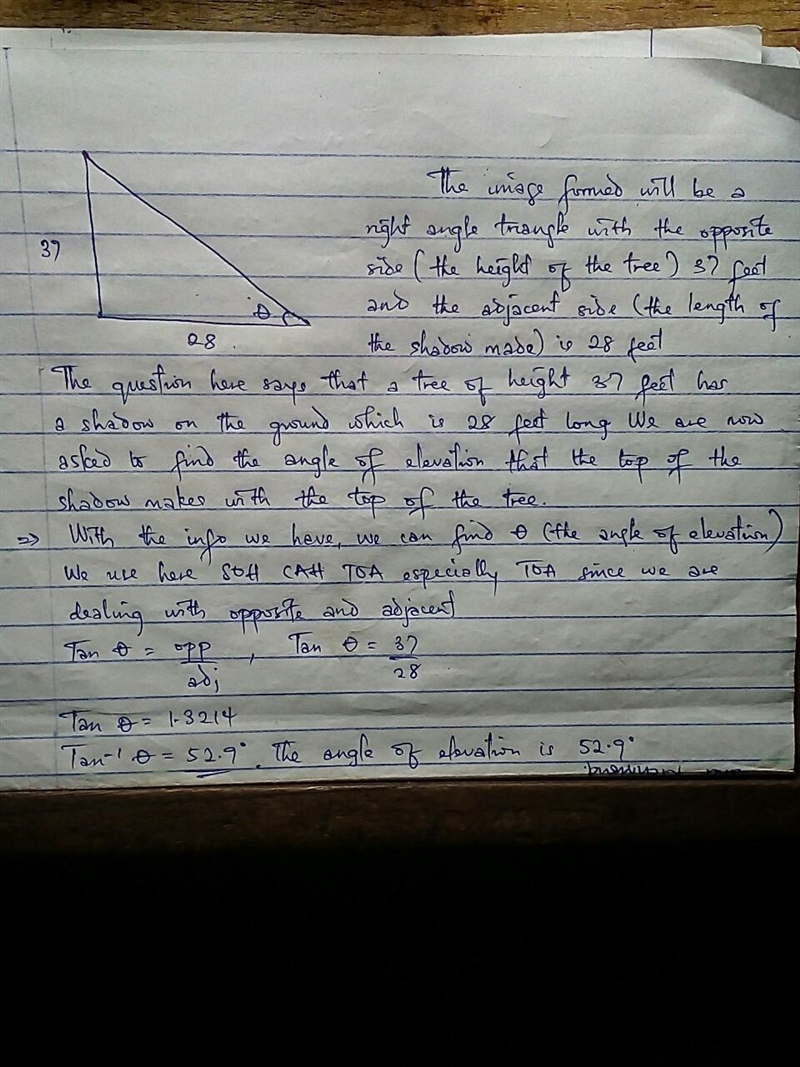 The image formed will be a
right angle triangle with the opposite
37
side (the height of the tree) 37 feet
θ
and the adjacent side (the length of
28.
the shadow made) is 28 feet
The question here says that a tree of height 37 feet has
a shadow on the ground which is 28 feet long We are now
asked to find the angle of elevation that the top of the
shadow makes with the top of the tree.
⇒ With the info we have, we can find θ (the angle of elevation)
We use here SOH CAH TOA especially TOA since we are
dealing with opposite and adjacent
Tan θ = opp/adj, Tan θ = 37/28
Tan θ = 1.3214
Tan⁻¹ θ = 52.9°. The angle of elevation is 52.9°